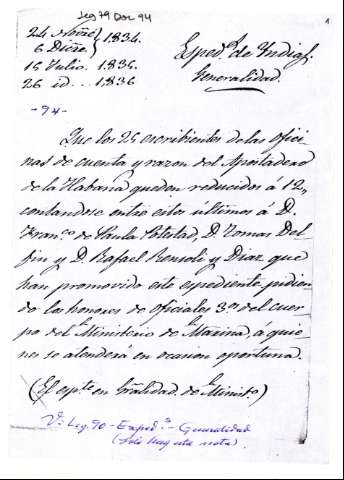 Leg 79 Doc 94
1
24 Novre } 1834.
6 Dicre }
Exped.s de Indias.
15 Julio. 1835.
Generalidad.
26 id... 1836
-94-
Que los 25 escribientes de las Ofici-
nas de cuenta y razon del Apostadero
de la Habana queden reducidos á 12,
contandose entre estos últimos á D.
Fran.co de Paula Potestad, D. Tomas Del-
fin y D. Rafael Rensoli y Diaz que
han promovido este espediente pidien-
do los honores de oficiales 3.os del cuer-
po del Ministerio de Marina, á quie-
nes se atenderá en ocasion oportuna.
(El espte en Gralidad. de Ministo.)
V: Leg. 90 - Exped.s - Generalidad
(Solo hay esta nota).